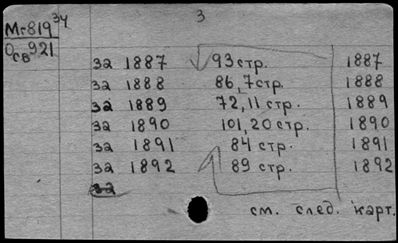 Мг819 34
Осв921
3
за 1887 93 стр. 1887
за 1888 86, 7 стр. 1888
за 1889 72, 11 стр. 1889
за 1890 101, 20 стр. 1890
за 1891 84 стр. 1891
за 1892 89 стр. 1892
за
см. след. карт.